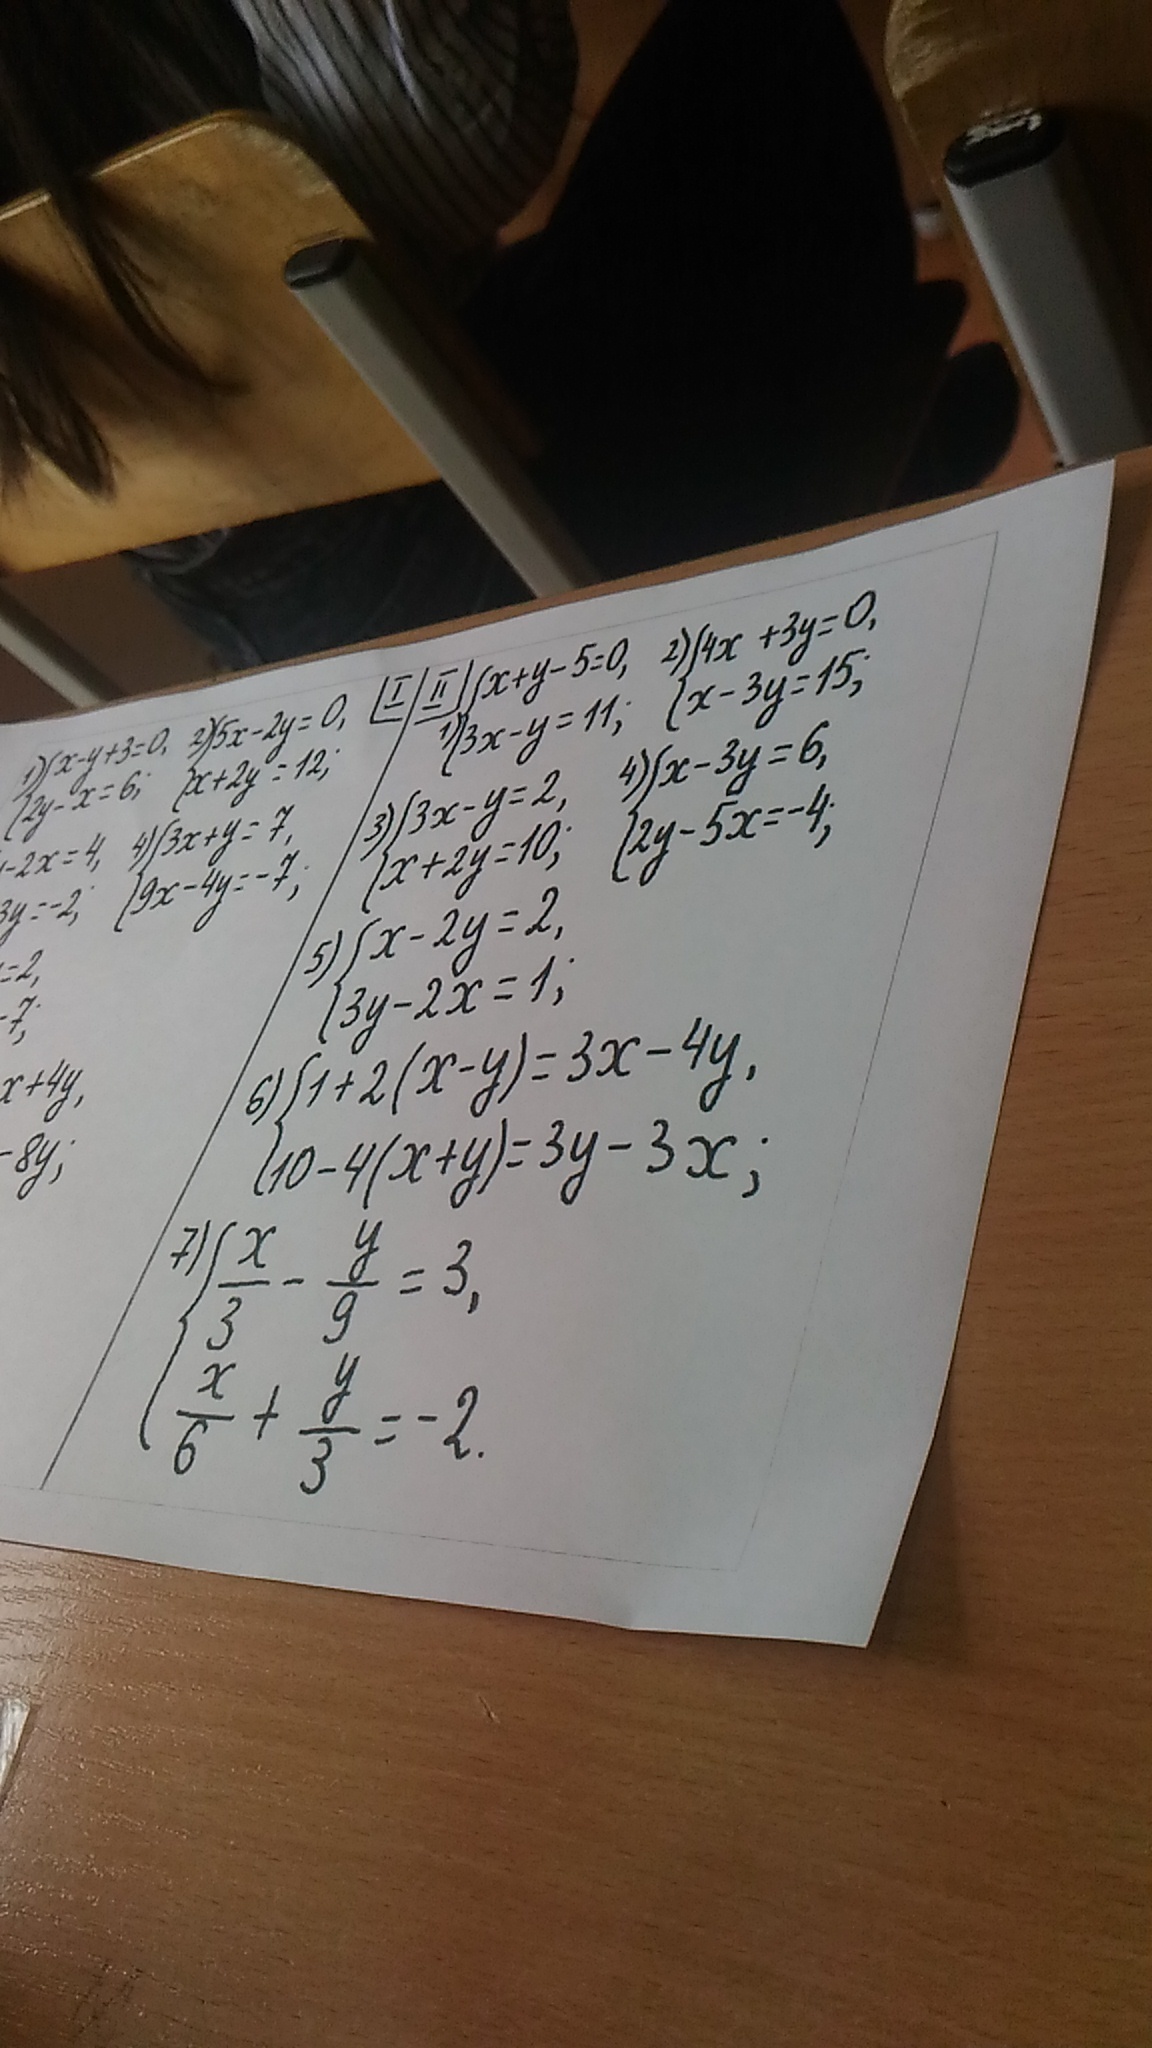 I
1) { x-y+3=0,
2y-x=6;
2) { 5x-2y=0,
x+2y=12;
-2x=4,
3y=-2;
4) { 3x+y=7,
9x-4y=-7;
=2,
-7;
x+4y,
-8y;
II
1) { x+y-5=0,
3x-y=11;
2) { 4x+3y=0,
x-3y=15;
3) { 3x-y=2,
x+2y=10;
4) { x-3y=6,
2y-5x=-4;
5) { x-2y=2,
3y-2x=1;
6) { 1+2(x-y)=3x-4y,
10-4(x+y)=3y-3x;
7) { x/3 - y/9 = 3,
x/6 + y/3 = -2.